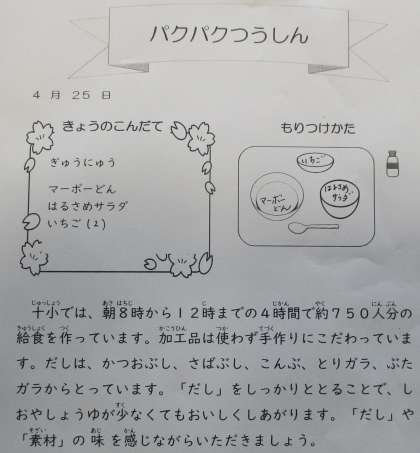 パクパクつうしん
4月25日
きょうのこんだて
ぎゅうにゅう
マーボーどん
はるさめサラダ
いちご(2)
もりつけかた
いちご
マーボー
どん
はるさめ
サラダ
十小では、朝8時から12時までの4時間で約750人分の
給食を作っています。加工品は使わず手作りにこだわっていま
す。だしは、かつおぶし、さばぶし、こんぶ、とりガラ、ぶた
ガラからとっています。「だし」をしっかりととることで、し
おやしょうゆが少なくてもおいしくしあがります。「だし」や
「素材」の味を感じながらいただきましょう。